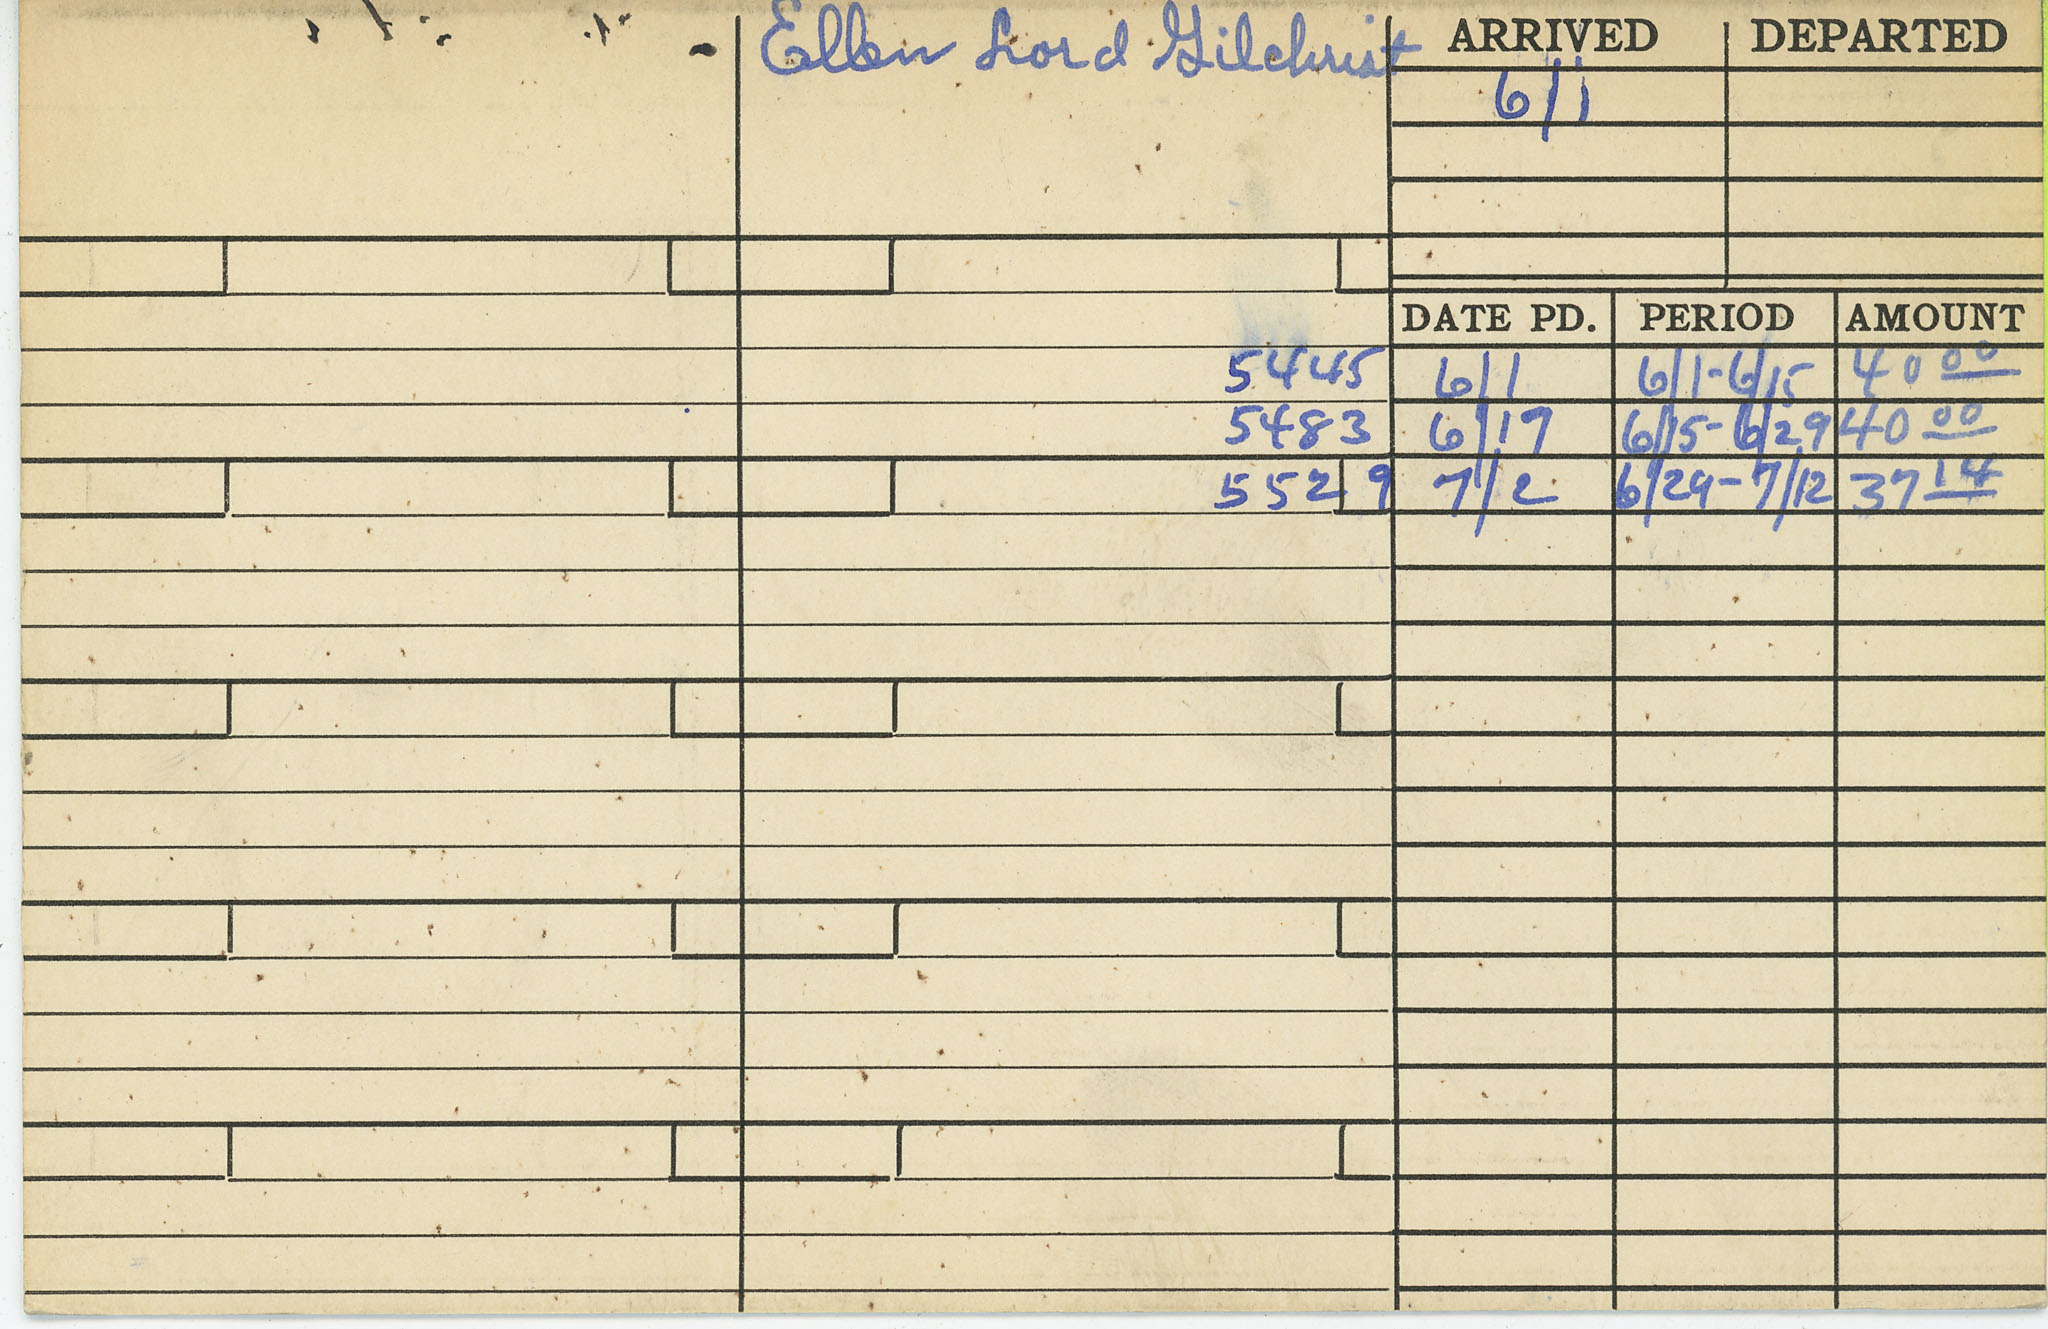 Ellen Lord Gilchrist ARRIVED DEPARTED
6/1
DATE PD. PERIOD AMOUNT
5445 6/1 6/1-6/15 40 00
5483 6/19 6/15-6/29 40 00
5529 7/2 6/29-7/12 37 14